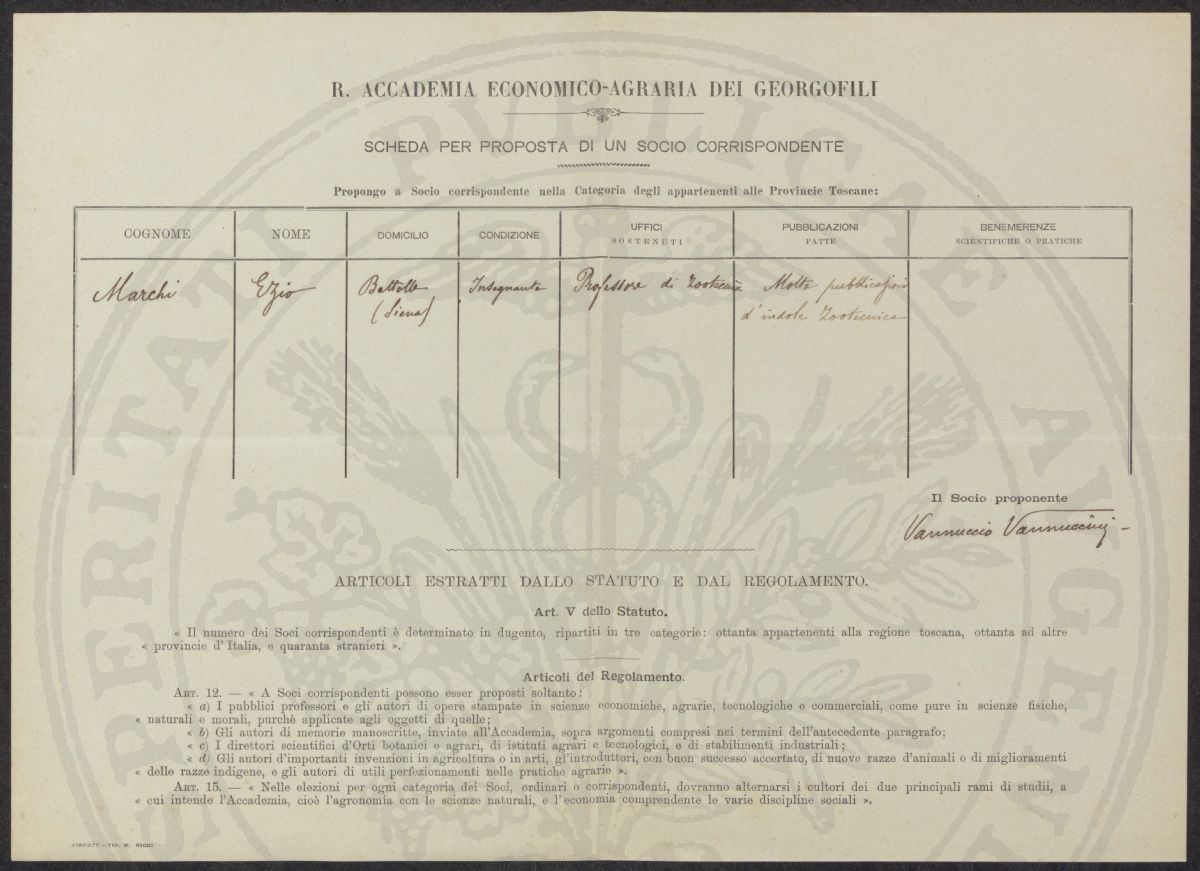 R. ACCADEMIA ECONOMICO-AGRARIA DEI GEORGOFILI
SCHEDA PER PROPOSTA DI UN SOCIO CORRISPONDENTE
Propongo a Socio corrispondente nella Categoria degli appartenenti alle Provincie Toscane:
COGNOME NOME DOMICILIO CONDIZIONE UFFICI SOSTENUTI PUBBLICAZIONI FATTE BENEMERENZE SCIENTIFICHE O PRATICHE
Marchi Ezio Bettolle Insegnante Professore di Zootecnia Molte pubblicazioni
(Siena) d'indole Zootecnica
Il Socio proponente
Vannuccio Vannuccini
ARTICOLI ESTRATTI DALLO STATUTO E DAL REGOLAMENTO.
Art. V dello Statuto.
« Il numero dei Soci corrispondenti è determinato in dugento, ripartiti in tre categorie: ottanta appartenenti alla regione toscana, ottanta ad altre
« provincie d'Italia, e quaranta stranieri ».
Articoli del Regolamento.
ART. 12. — « A Soci corrispondenti possono esser proposti soltanto:
« a) I pubblici professori e gli autori di opere stampate in scienze economiche, agrarie, tecnologiche e commerciali, come pure in scienze fisiche,
« naturali e morali, purchè applicate agli oggetti di quelle;
« b) Gli autori di memorie manoscritte, inviate all'Accademia, sopra argomenti compresi nei termini dell'antecedente paragrafo;
« c) I direttori scientifici d'Orti botanici e agrari, di istituti agrari e tecnologici, e di stabilimenti industriali;
« d) Gli autori d'importanti invenzioni in agricoltura o in arti, gl'introduttori, con buon successo accertato, di nuove razze d'animali o di miglioramenti
« delle razze indigene, e gli autori di utili perfezionamenti nelle pratiche agrarie ».
ART. 15. — « Nelle elezioni per ogni categoria dei Soci, ordinari o corrispondenti, dovranno alternarsi i cultori dei due principali rami di studii, a
« cui intende l'Accademia, cioè l'agronomia con le scienze naturali, e l'economia comprendente le varie discipline sociali ».
FIRENZE - TIP. M. RICCI
PROSPERITATI PUBLICAE AUGENDAE